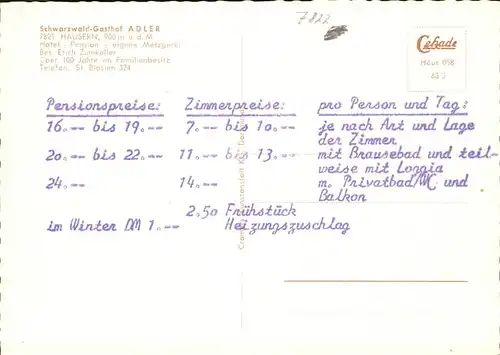 Schwarzwald-Gasthof ADLER
7821 HÄUSERN, 900 m ü. d. M
Hotel - Pension - eigene Metzgerei
Bes. Erich Zumkeller
Über 100 Jahre im Familienbesitz
Telefon: St. Blasien 324
7822
Cekade
Häus 018
Pensionspreise: Zimmerpreise: pro Person und Tag:
16.-- bis 19.-- 7.-- bis 10.-- je nach Art und Lage
der Zimmer
20.-- bis 22.-- 11.-- bis 13.-- mit Brausebad und teil-
weise mit Loggia
24.-- 14.-- m. Privatbad/WC und
Balkon
2.50 Frühstück
im Winter DM 1.-- Heizungszuschlag